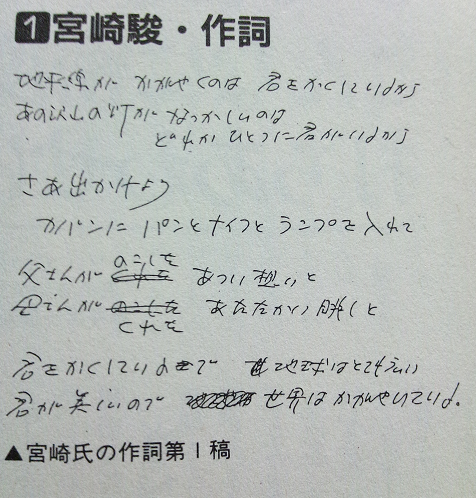 1 宮崎駿・作詞
地平線が かがやくのは 君をかくしているから
あの沢山の灯が なつかしいのは
どれかひとつに君がいるから
さあ出かけよう
カバンに パンとナイフとランプを入れて
のこした
父さんが くれた あつい想いと
母さんが のこした あたたかい眼しと
くれた
君をかくしているので 地球はとても
君が美しいので 世界はかがやいている。
▲宮崎氏の作詞第1稿